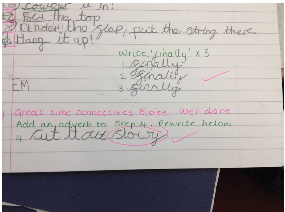 it in!
the top
Under the flap, put the string there
Hang it up!
Write 'finally' x3
1. finally
2. finally
3. finally
EM
Great time connectives Well done
Add an adverb to step 4. Rewrite below
4. Cut it out slowly